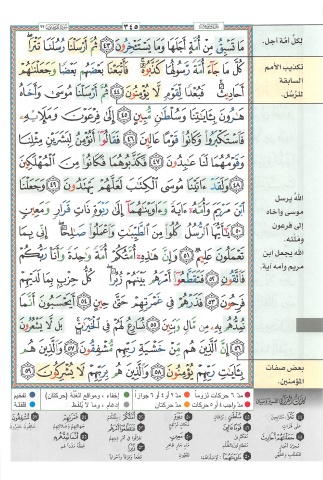 ٣٤٥
مَا تَسْبِقُ مِنْ أُمَّةٍ أَجَلَهَا وَمَا يَسْتَـْٔخِرُونَ ٤٣ ثُمَّ أَرْسَلْنَا رُسُلَنَا تَتْرَا
كُلَّ مَا جَآءَ أُمَّةً رَّسُولُهَا كَذَّبُوهُ فَأَتْبَعْنَا بَعْضَهُم بَعْضًا وَجَعَلْنَٰهُمْ
أَحَادِيثَ فَبُعْدًا لِّقَوْمٍ لَّا يُؤْمِنُونَ ٤٤ ثُمَّ أَرْسَلْنَا مُوسَىٰ وَأَخَاهُ
هَٰرُونَ بِـَٔايَٰتِنَا وَسُلْطَٰنٍ مُّبِينٍ ٤٥ إِلَىٰ فِرْعَوْنَ وَمَلَإِي۟هِۦ
فَٱسْتَكْبَرُوا۟ وَكَانُوا۟ قَوْمًا عَالِينَ ٤٦ فَقَالُوٓا۟ أَنُؤْمِنُ لِبَشَرَيْنِ مِثْلِنَا
وَقَوْمُهُمَا لَنَا عَٰبِدُونَ ٤٧ فَكَذَّبُوهُمَا فَكَانُوا۟ مِنَ ٱلْمُهْلَكِينَ
٤٨ وَلَقَدْ ءَاتَيْنَا مُوسَى ٱلْكِتَٰبَ لَعَلَّهُمْ يَهْتَدُونَ ٤٩ وَجَعَلْنَا
ٱبْنَ مَرْيَمَ وَأُمَّهُۥٓ ءَايَةً وَءَاوَيْنَٰهُمَآ إِلَىٰ رَبْوَةٍ ذَاتِ قَرَارٍ وَمَعِينٍ
٥٠ يَٰٓأَيُّهَا ٱلرُّسُلُ كُلُوا۟ مِنَ ٱلطَّيِّبَٰتِ وَٱعْمَلُوا۟ صَٰلِحًا إِنِّى بِمَا
تَعْمَلُونَ عَلِيمٌ ٥١ وَإِنَّ هَٰذِهِۦٓ أُمَّتُكُمْ أُمَّةً وَٰحِدَةً وَأَنَا۠ رَبُّكُمْ
فَٱتَّقُونِ ٥٢ فَتَقَطَّعُوٓا۟ أَمْرَهُم بَيْنَهُمْ زُبُرًا كُلُّ حِزْبٍۭ بِمَا لَدَيْهِمْ
فَرِحُونَ ٥٣ فَذَرْهُمْ فِى غَمْرَتِهِمْ حَتَّىٰ حِينٍ ٥٤ أَيَحْسَبُونَ أَنَّمَا
نُمِدُّهُم بِهِۦ مِن مَّالٍ وَبَنِينَ ٥٥ نُسَارِعُ لَهُمْ فِى ٱلْخَيْرَٰتِ بَل لَّا يَشْعُرُونَ
٥٦ إِنَّ ٱلَّذِينَ هُم مِّنْ خَشْيَةِ رَبِّهِم مُّشْفِقُونَ ٥٧ وَٱلَّذِينَ هُم
بِـَٔايَٰتِ رَبِّهِمْ يُؤْمِنُونَ ٥٨ وَٱلَّذِينَ هُم بِرَبِّهِمْ لَا يُشْرِكُونَ ٥٩
لكل أمة أجل.
تكذيب الأمم
السابقة
للرسل.
الله يرسل
موسى وأخاه
إلى فرعون
وملئه.
الله يجعل ابن
مريم وأمه آية.
بعض صفات
المؤمنين.
مدّ ٦ حركات لزوماً
مدّ ٢ أو ٤ أو ٦ جوازاً
إخفاء، ومواقع الغنّة (حركتان)
تفخيم
مدّ واجب ٤ أو ٥ حركات
مدّ حركتان
إدغام، وما لا يُلفظ
قلقلة